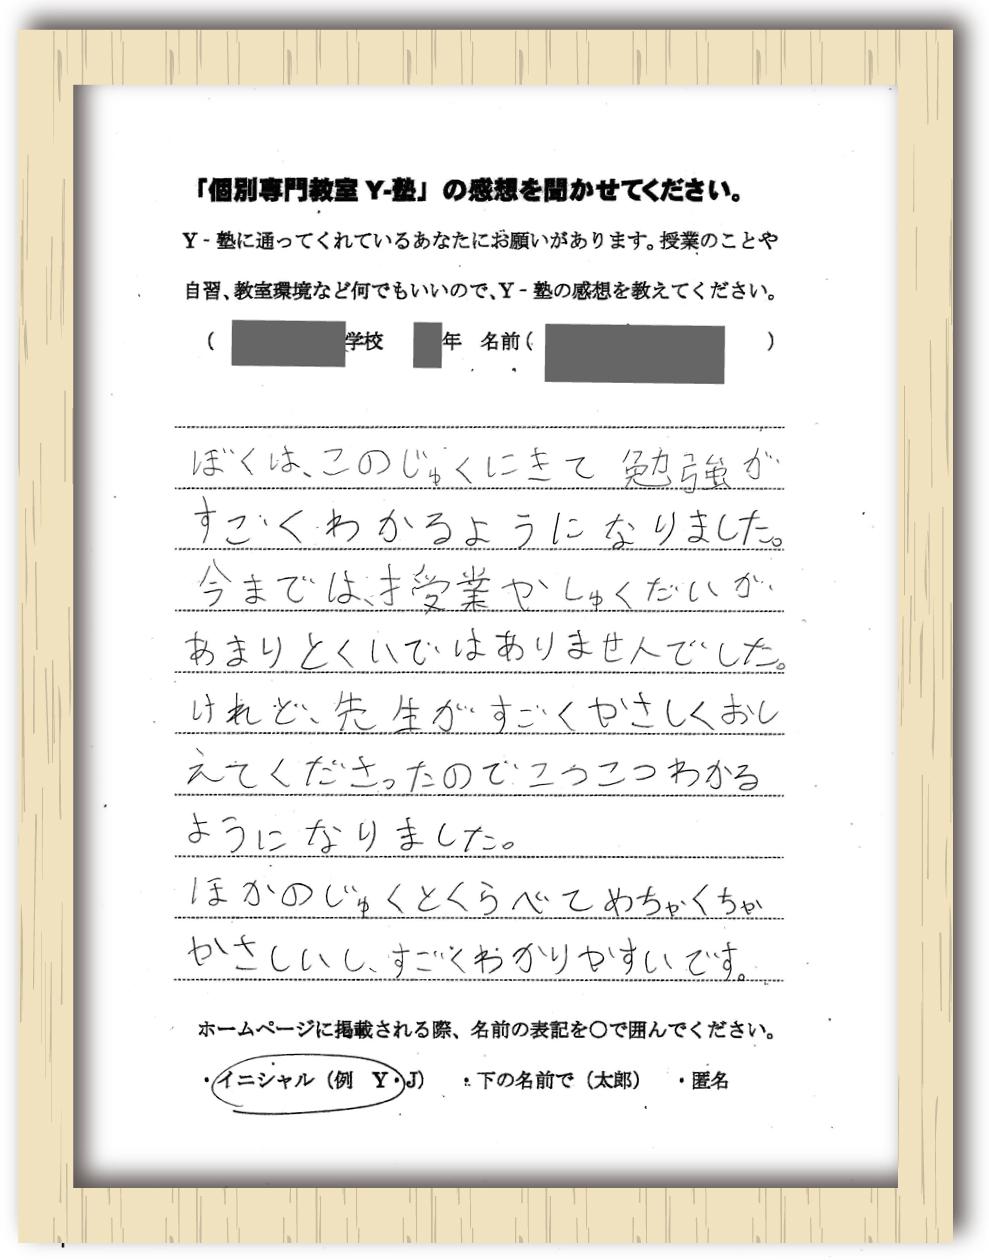 「個別専門教室 Y-塾」の感想を聞かせてください。
Y‐塾に通ってくれているあなたにお願いがあります。授業のことや
自習、教室環境など何でもいいので、Y‐塾の感想を教えてください。
（　学校　年　名前（　）
ぼくは、このじゅくにきて勉強が
すごくわかるようになりました。
今までは、授業やしゅくだいが
あまりとくいではありませんでした。
けれど、先生がすごくやさしくおし
えてくださったのでこつこつわかる
ようになりました。
ほかのじゅくとくらべてめちゃくちゃ
やさしいし、すごくわかりやすいです。
ホームページに掲載される際、名前の表記を〇で囲んでください。
・イニシャル（例　Y・J）　・下の名前で（太郎）　・匿名